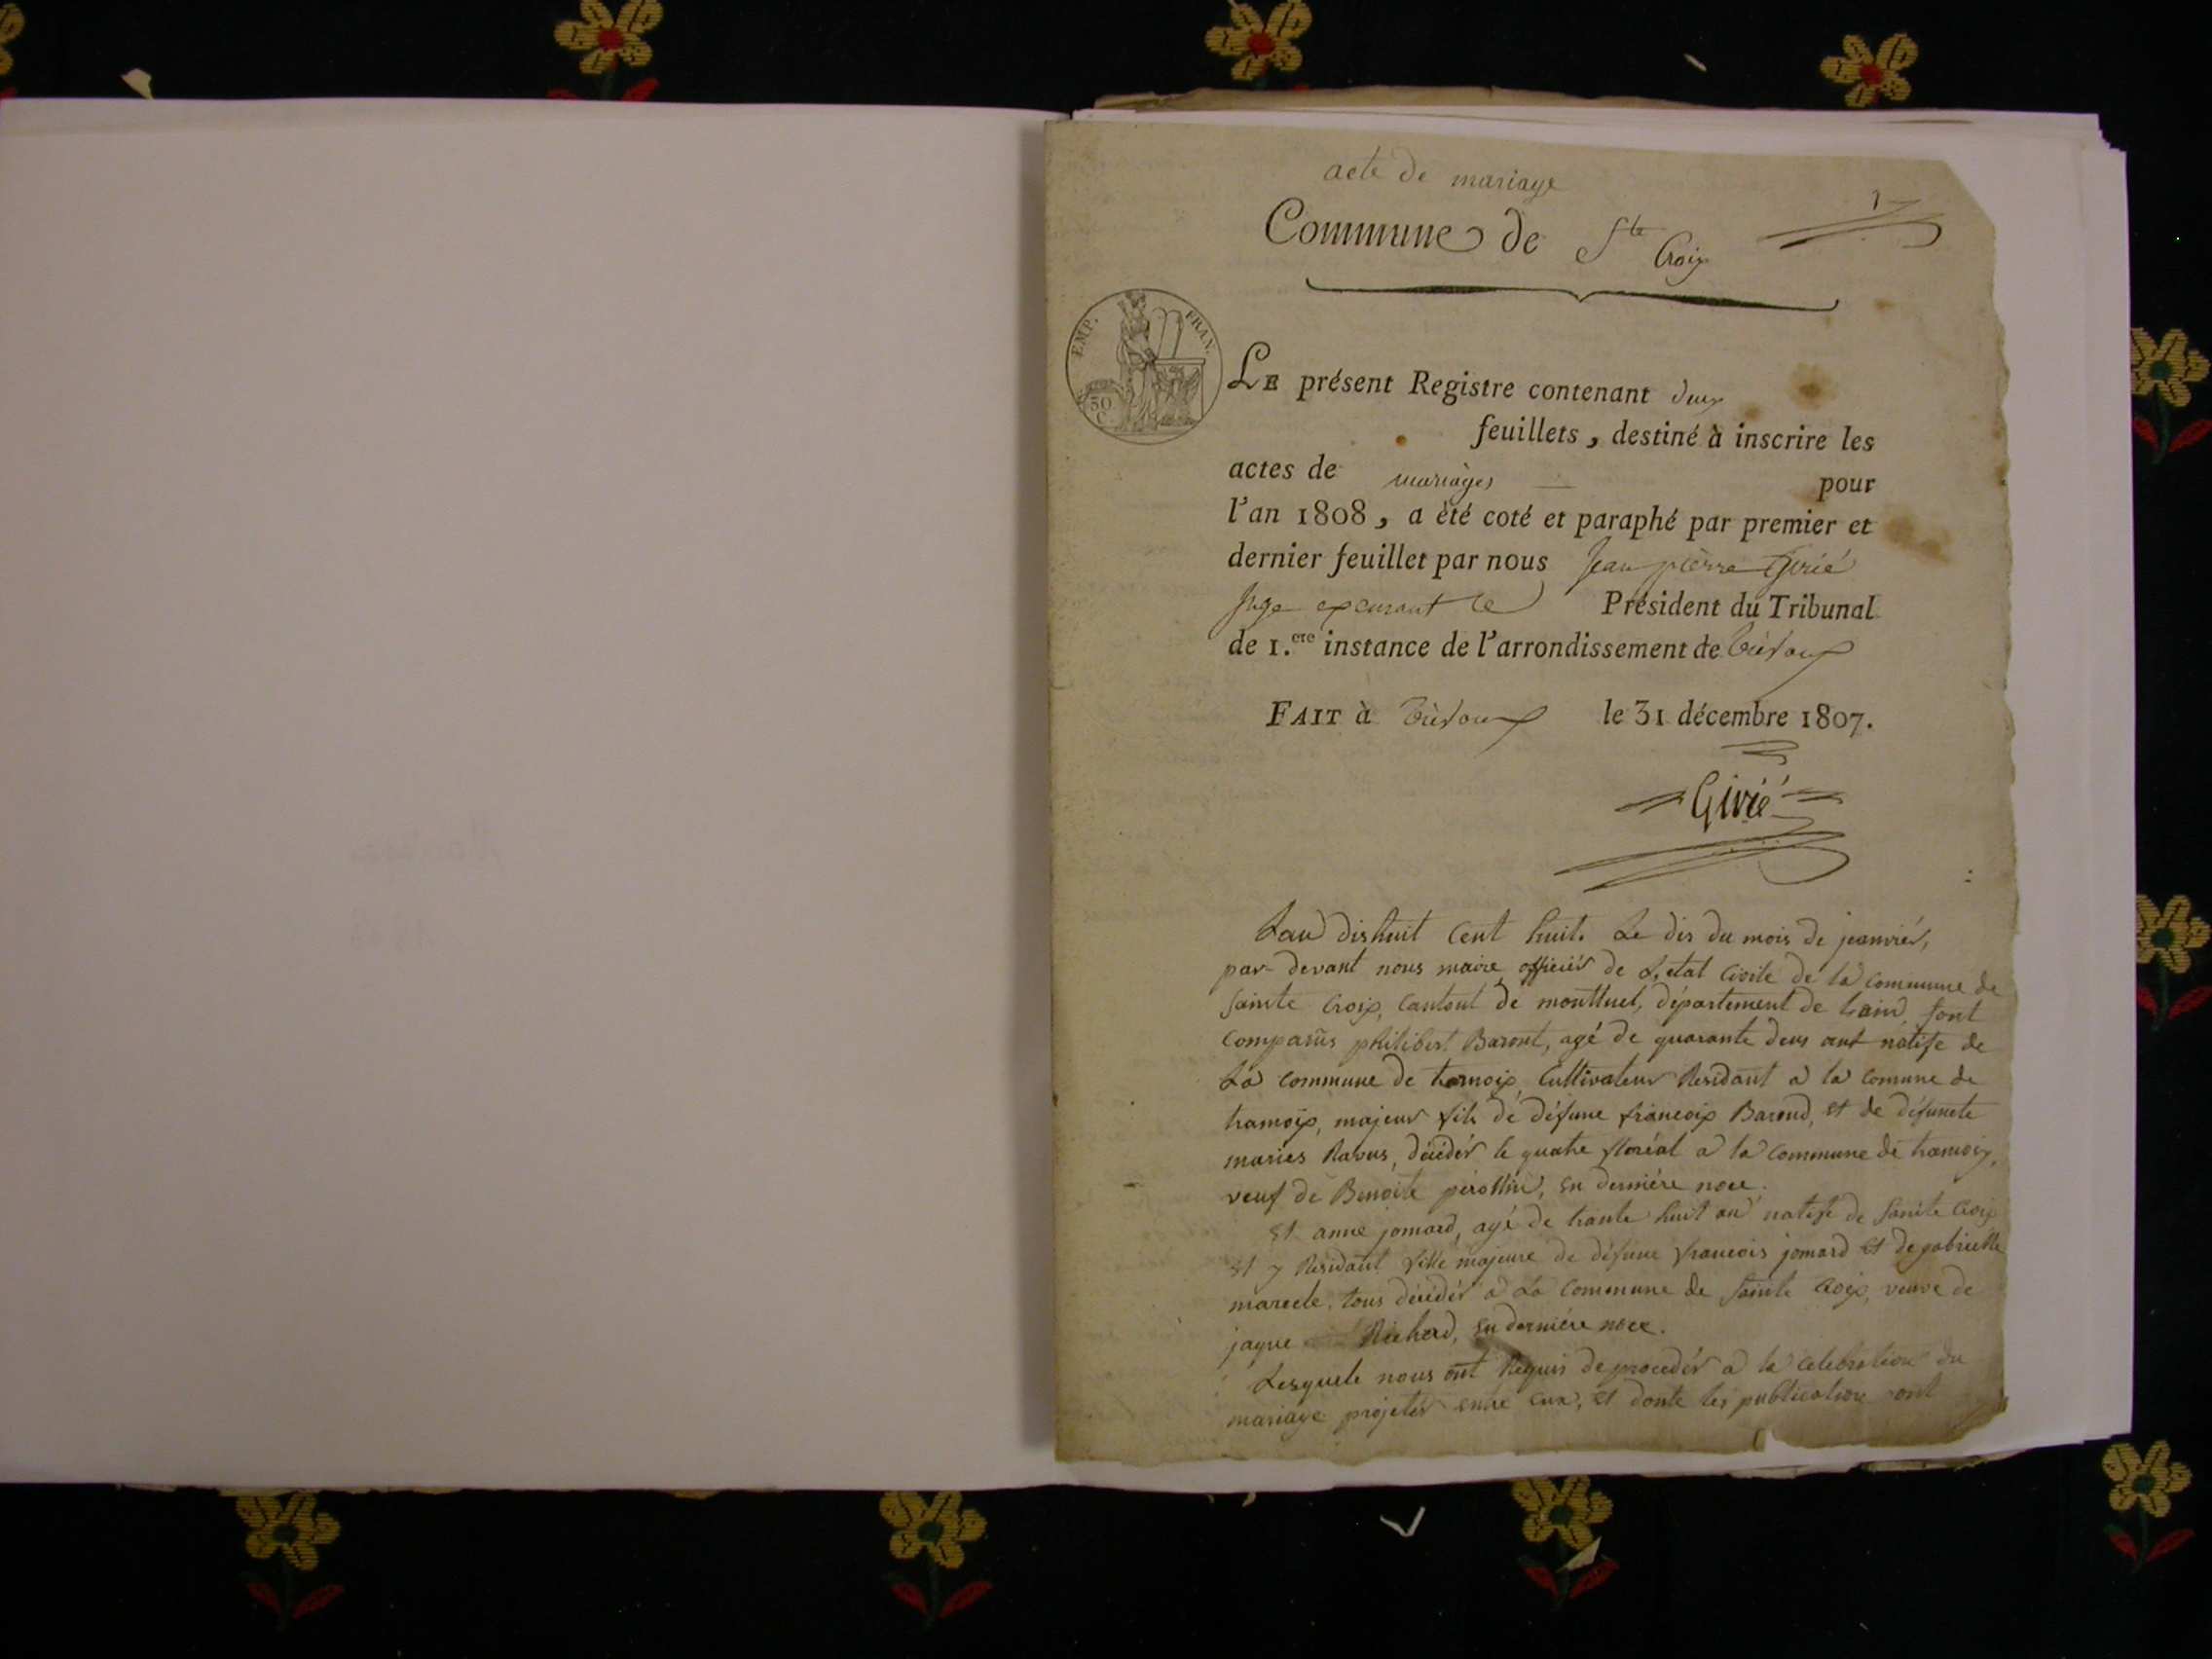 acte de mariage
1
Commune de Ste Croix
EMP. FRAN.
30
C.
LE présent Registre contenant deux
feuillets, destiné à inscrire les
actes de mariages pour
l'an 1808, a été coté et paraphé par premier et
dernier feuillet par nous Jean pierre Girié
Juge exerçant le Président du Tribunal
de 1.ere instance de l'arrondissement de Trévoux
FAIT à Trévoux le 31 décembre 1807.
Girié
Lan dishuit Cent huit. Le dis du mois de jeanvier,
par devant nous maire officiér de L,etat Civile de la commune de
Sainte Croix, Cantont de montluel, département de Lain, sont
Comparus philibert Baront, agé de quarante deus ant natife de
La commune de tramoix Cultivateur Residant a la Comune de
tramoix, majeur fils dé défune francoix Barond, et de défuncte
maries Ravus, décédér le quatre floréal a la commune de tramoix,
veuf de Benoite en derniére noce.
Et anne jomard, agé de trante huit an natife de Sainte Croix
Et y Residant fille majeure de défune francois jomard Et de gabrielle
tous décédér a La Commune de Sainte Croix, veuve de
jaque Richard, en derniére noce.
Lesquele nous ont Requis de procedér a la Celebration du
mariage projetér entre eux, et donte les publication ont